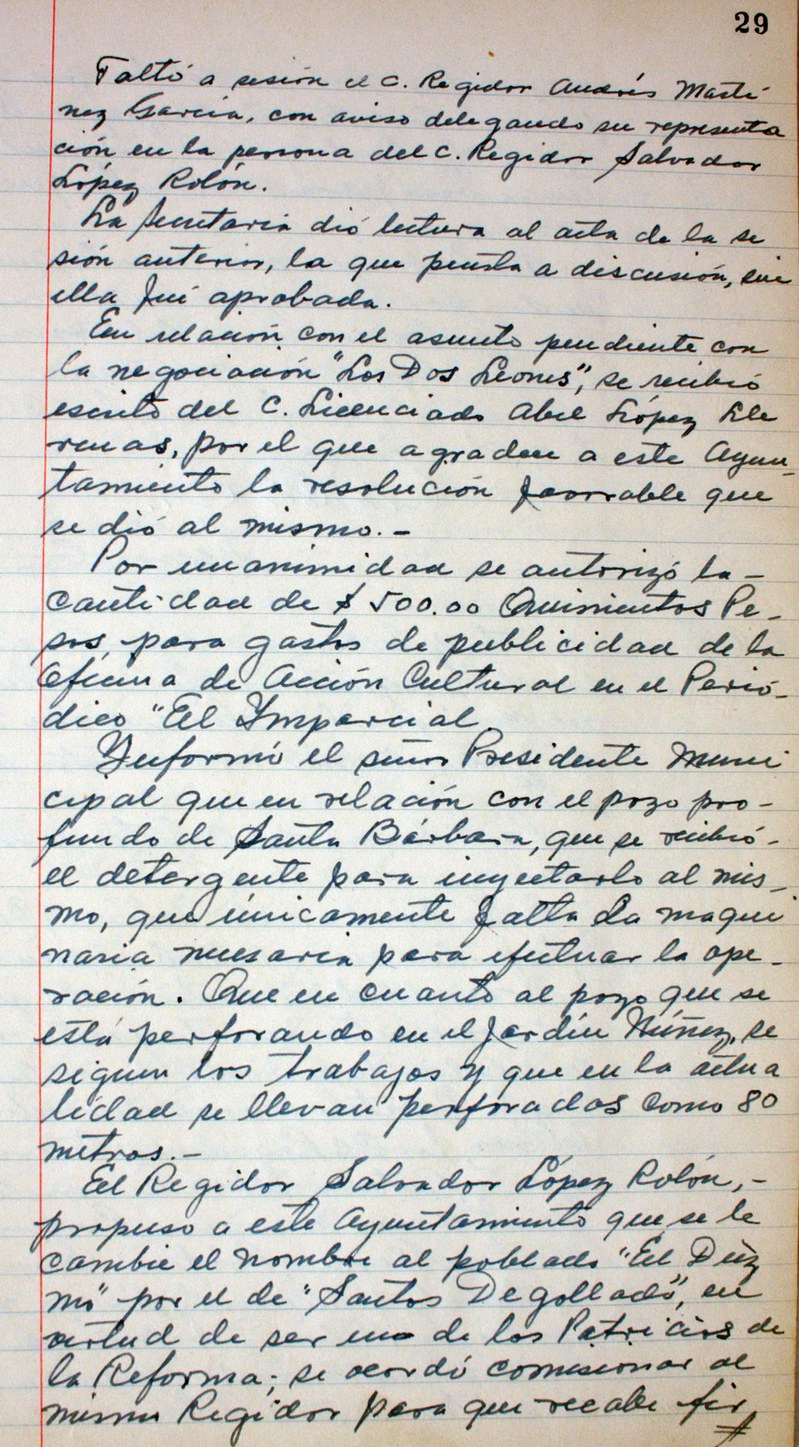 29
Faltó a sesión el C. Regidor Andrés Martí
nez García, con aviso delegando su representa
ción en la persona del C. Regidor Salvador
López Rolón.
La Secretaria dió lectura al acta de la se
sión anterior, la que puesta a discusión, sin
ella fué aprobada.
En relación con el asunto pendiente con
la negociación "Los Dos Leones", se recibió
escrito del C. Licenciado Abel López Lle
renas, por el que agradece a este Ayun_
tamiento la resolución favorable que
se dió al mismo.-
Por unanimidad se autorizó la-
cantidad de $500.00 Quinientos Pe-
sos, para gastos de publicidad de la
Oficina de Acción Cultural en el Perió-
dico "El Imparcial
Informó el señor Presidente Muni
cipal que en relación con el pozo pro-
fundo de Santa Bárbara, que se recibió-
el detergente para inyectarlo al mis_
mo, que únicamente falta la maqui
naria necesaria para efectuar la ope-
ración. Que en cuanto al pozo que se
está perforando en el Jardín Núñez, se
siguen los trabajos y que en la actua
lidad se llevan perforados como 80
metros.-
El Regidor Salvador López Rolón,-
propuso a este Ayuntamiento que se le
cambie el nombre al poblado "El Diez
mo" por el de "Santos Degollado", en
virtud de ser uno de los Patricios de
la Reforma; se acordó comisionar al
mismo Regidor para que recabe fir